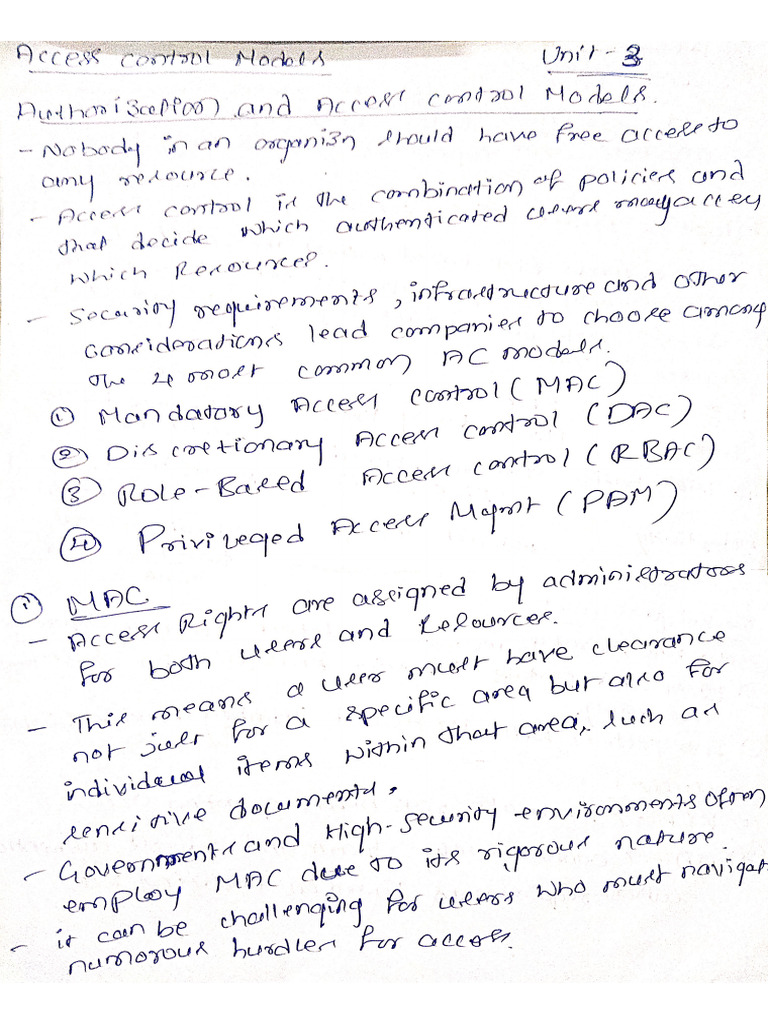 Access control Models Unit-3
Authorisation and Access control Models.
- Nobody in an organizn should have free access to
any resource.
- Access control is the combination of policies and
that decide which authenticated users may access
which Resources.
- Security requirements, infrastructure and other
considerations lead companies to choose among
the 4 most common AC models.
① Mandatory Access control (MAC)
② Discretionary Access control (DAC)
③ Role-Based Access control (RBAC)
④ Privileged Access Mgmt (PAM)
① MAC
- Access Rights are assigned by administrators
for both users and Resources.
- This means a user must have clearance
not just for a specific area but also for
individual items within that area, such as
sensitive documents.
- Governments and High-security environments often
employ MAC due to its rigorous nature.
- it can be challenging for users who must navigat
numorous hurdles for access.